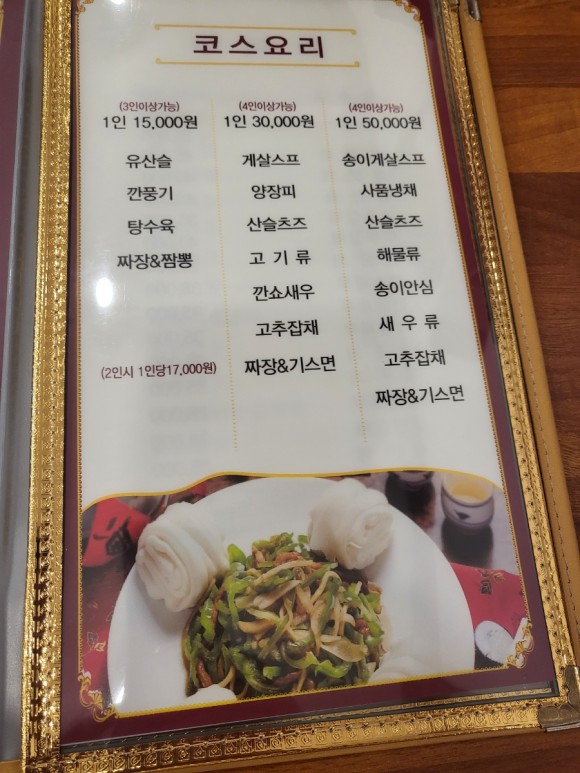 코스요리
(3인이상가능)
1인 15,000원
유산슬
깐풍기
탕수육
짜장&짬뽕
(2인시 1인당17,000원)
(4인이상가능)
1인 30,000원
게살스프
양장피
산슬츠즈
고 기 류
깐쇼새우
고추잡채
짜장&기스면
(4인이상가능)
1인 50,000원
송이게살스프
사품냉채
산슬츠즈
해물류
송이안심
새 우 류
고추잡채
짜장&기스면